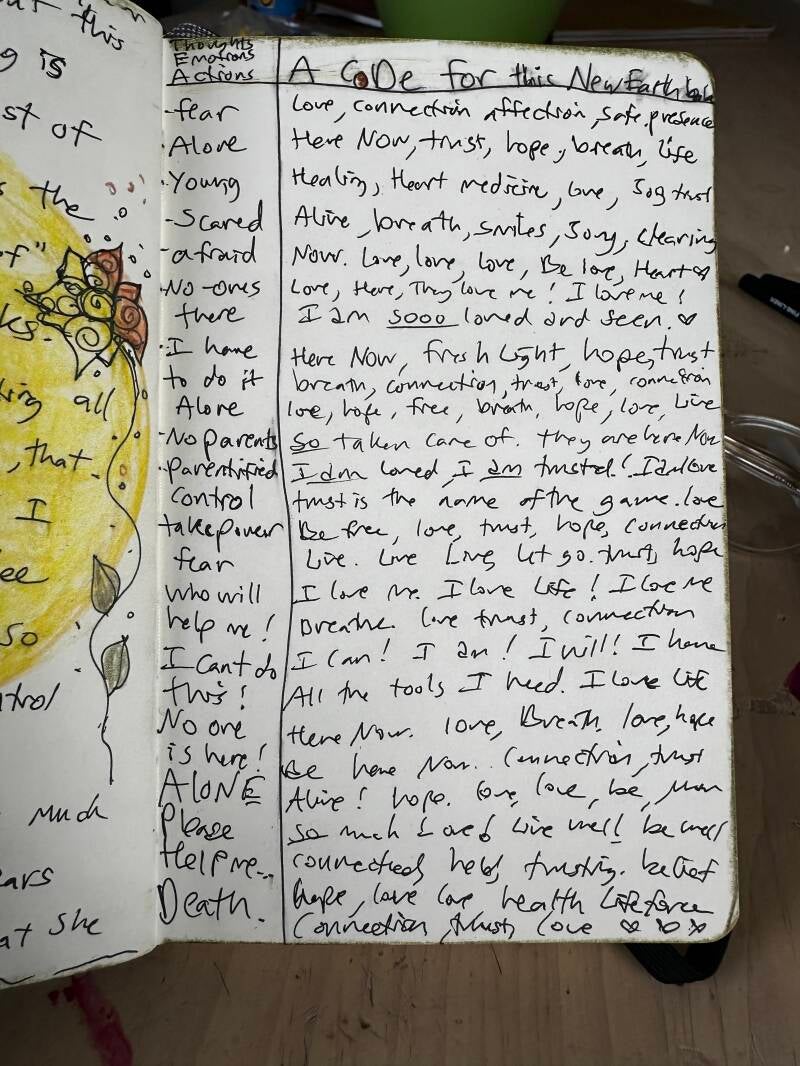 this
g is
st of
s the
of"
ks.
ing all
, that
I
ee
so
ntrol
much
ars
at she
Thoughts
Emotions
Actions
-fear
-Alone
-Young
-Scared
-afraid
-No-ones
there
-I have
to do it
Alone
-No parents
-Parentified
control
takeover
fear
who will
help me!
I Cant do
this!
No one
is here!
AlONE
Please
Help me...
Death.
A CODe for this New Earth
Love, connection affection, safe, presence
Here Now, trust, hope, breath, life
Healing, Heart medicine, love, Joy trust
Alive, breath, smiles, Joy, clearing
Now. Love, love, love, Be love, Heart ♡
Love, Here, They love me! I love me!
I am sooo loved and seen. ♡
Here Now, fresh Light, hope, trust
breath, connection, trust, love, connection
love, hope, free, breath, hope, love, Live
So taken care of. they are here Now
I am loved, I am trusted! I am love
trust is the name of the game. love
Be free, love, trust, hope, connection
Live. Live Living let go. trust, hope
I love me. I love Life! I love me
Breathe. love trust, connection
I Can! I am! I will! I have
All the tools I need. I Love Life
Here Now. love, Breath, love, hope
Be here Now. Connection, trust
Alive! hope. love, love, be,
So much Love! Live well! be well
connected, held, trusting. belief
hope, love love health Lifeforce
Connection, trust, love ♡ ♡ ♡
FINE LINER